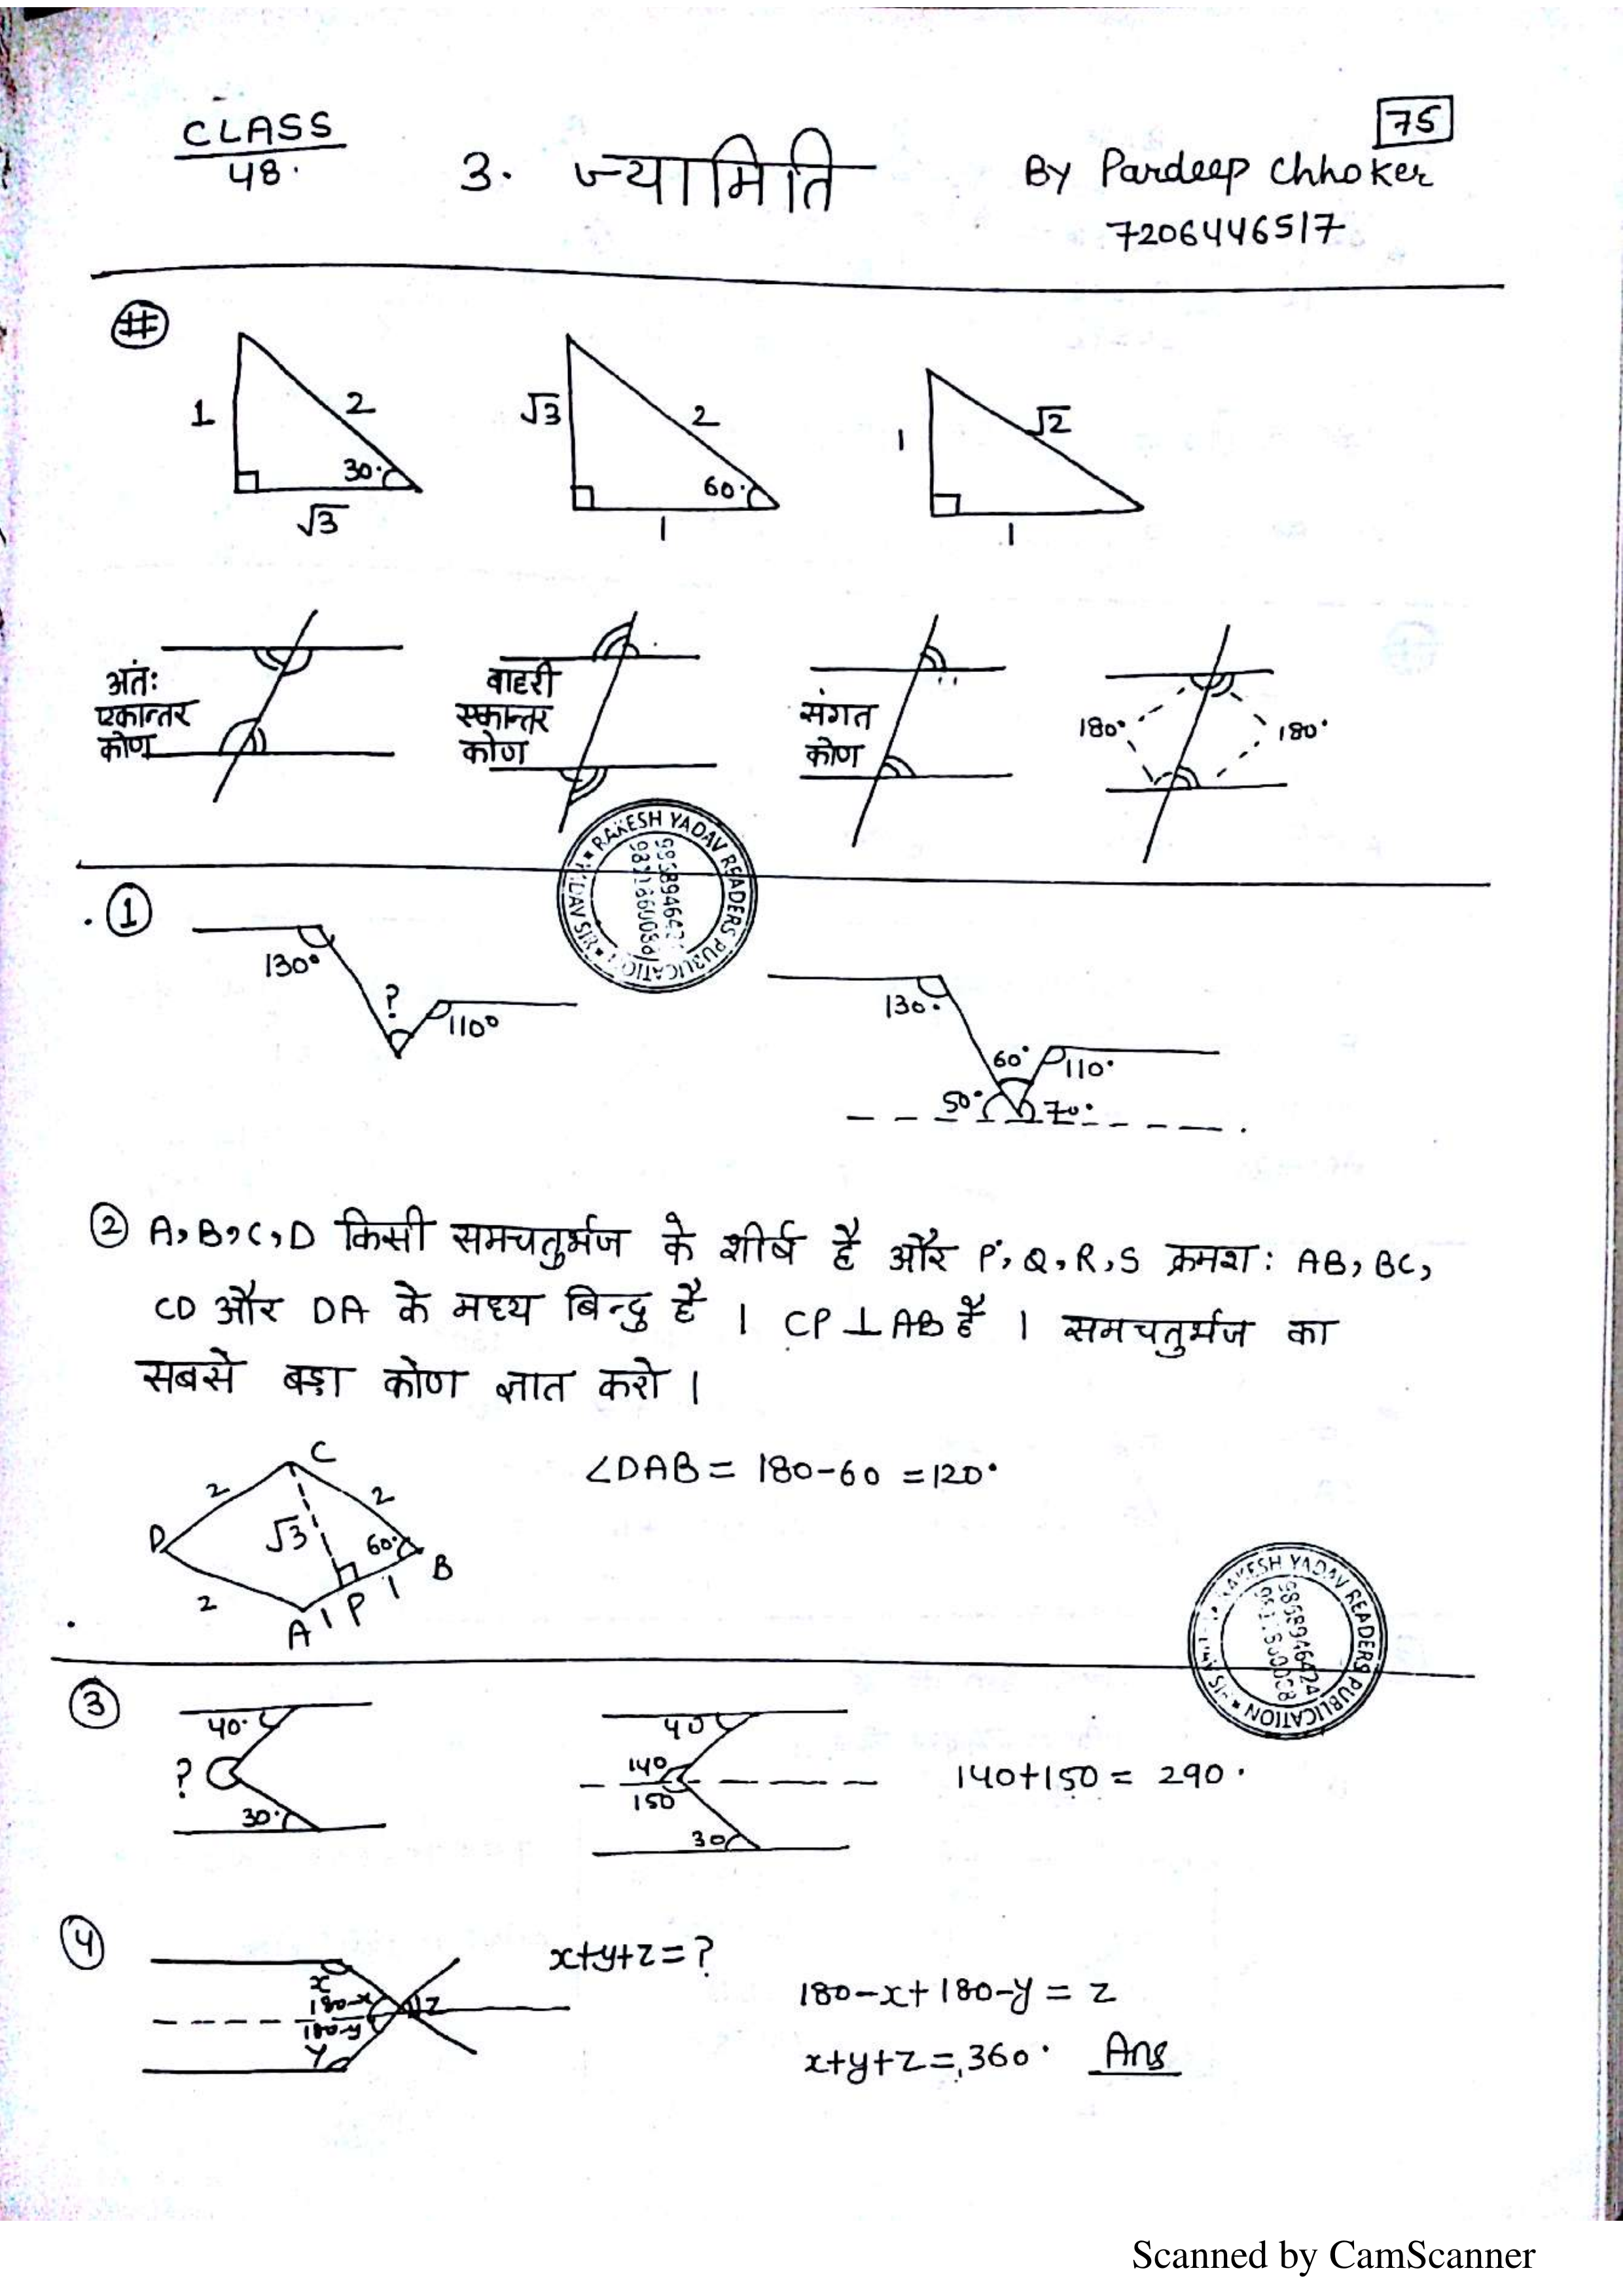 CLASS
48.
3. ज्यामिति
75
By Pardeep Chhoker
7206446517
#
1
2
30°
√3
√3
2
60°
1
1
√2
1
अंतः
एकान्तर
कोण
बाहरी
एकान्तर
कोण
संगत
कोण
180°
180°
RAKESH YADAV READERS PUBLICATION
YADAV SIR
1
130°
?
110°
130°
60°
110°
50°
70°
2 A,B,C,D किसी समचतुर्भुज के शीर्ष है और P, Q, R, S क्रमश: AB, BC,
CD और DA के मध्य बिन्दु है । CP ⊥ AB है । समचतुर्भुज का
सबसे बड़ा कोण ज्ञात करो ।
C
2
2
D
√3
60°
B
2
A
1
P
1
∠DAB = 180-60 = 120°
RAKESH YADAV READERS PUBLICATION
3
40°
?
30°
40
140
150
30
140+150 = 290°
4
x
180-x
180-y
y
z
x+y+z=?
180-x+180-y = z
x+y+z = 360° Ans
Scanned by CamScanner